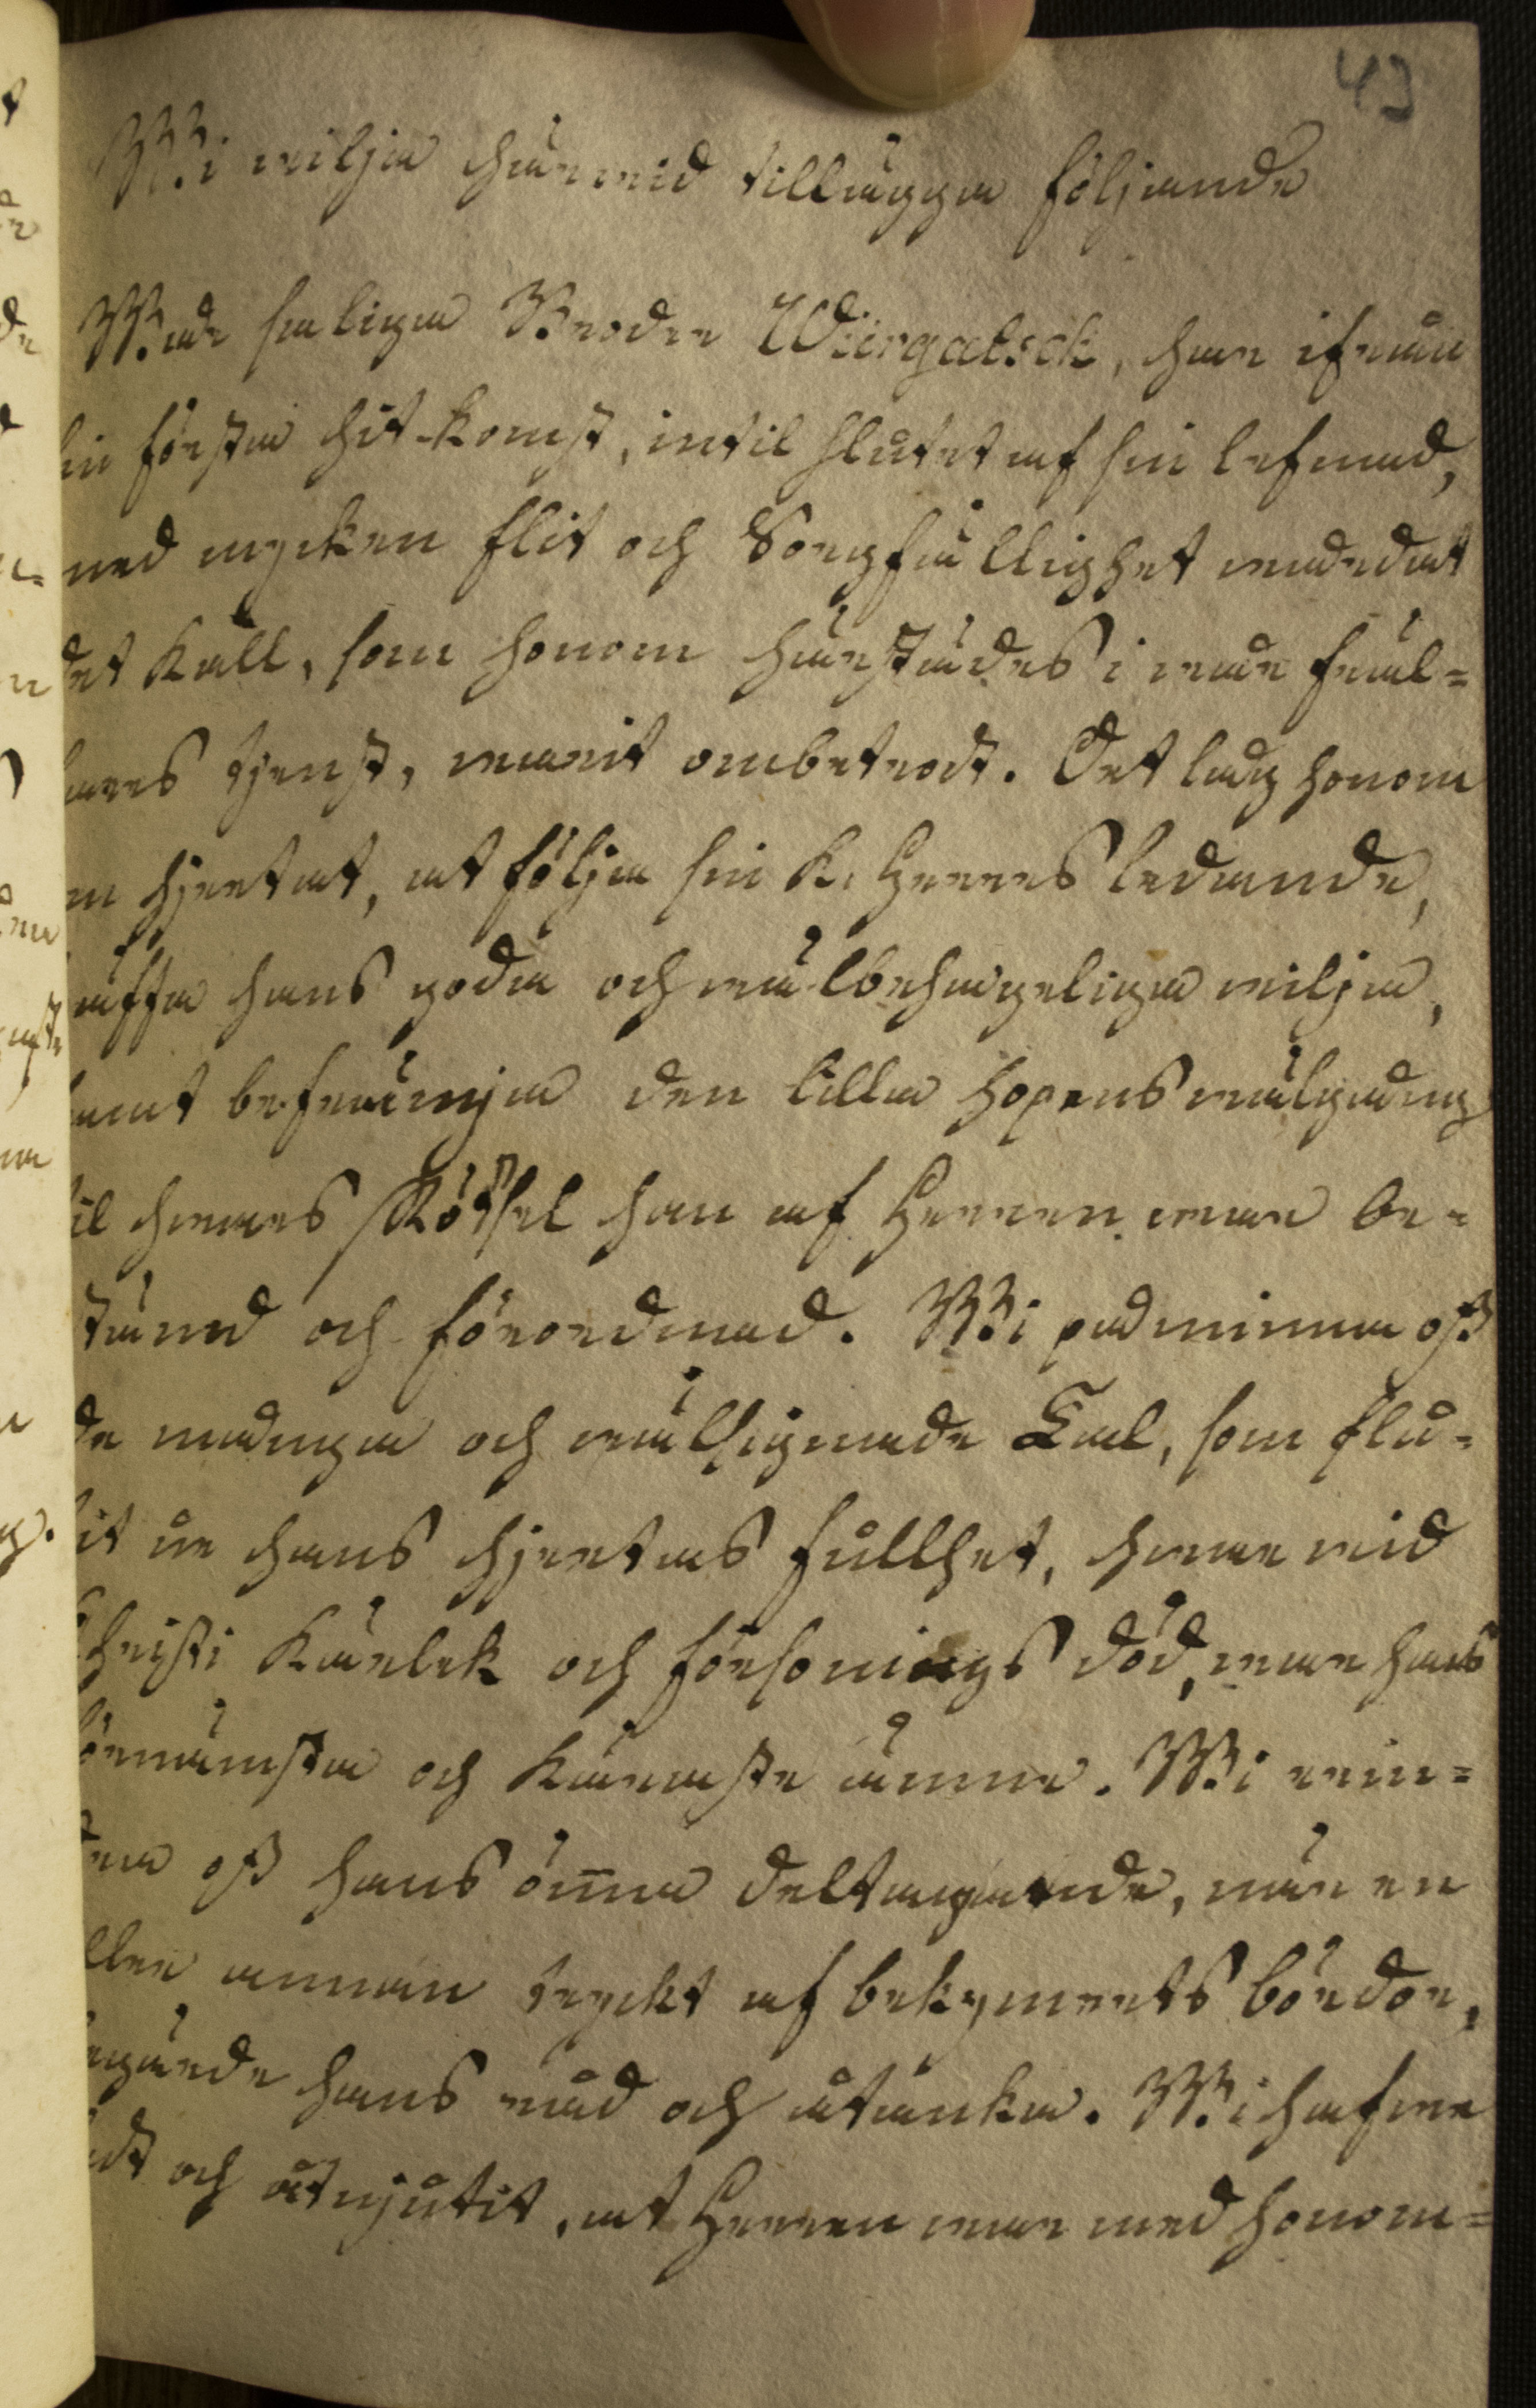 43
Wi wilja härwid tillägga följande
Wår saliga Broder Würgatsch, har ifrån
sin första hit-komst, intil slutet af sin lefnad,
med mycken flit och Sorgfällighet wårdat
det Kall, som honom härstädes i wår fräl-
sares tjenst, warit ombetrodt. Det låg honom
om hjertat, at följa sin k. Herres ledande,
träffa hans goda och wälbehageliga wilja,
samt befrämja den lilla hopens wälgång
til hwars skötsel han af Herren war be-
stämd och förordnad. Wi påminna oss
de många och wälsignade Tal, som flu-
tit ur hans hjertas fullhet, hwarwid
Christi Kärlek och försonings död, war hans
förnämsta och käraste ämne. Wi erin-
dra oss hans ömma deltagande, när en
eller annan tryckt af bekymrets bördor,
begärde hans råd och åtanka. Wi hafwa
och åtnjutit, at Herren war med honom-